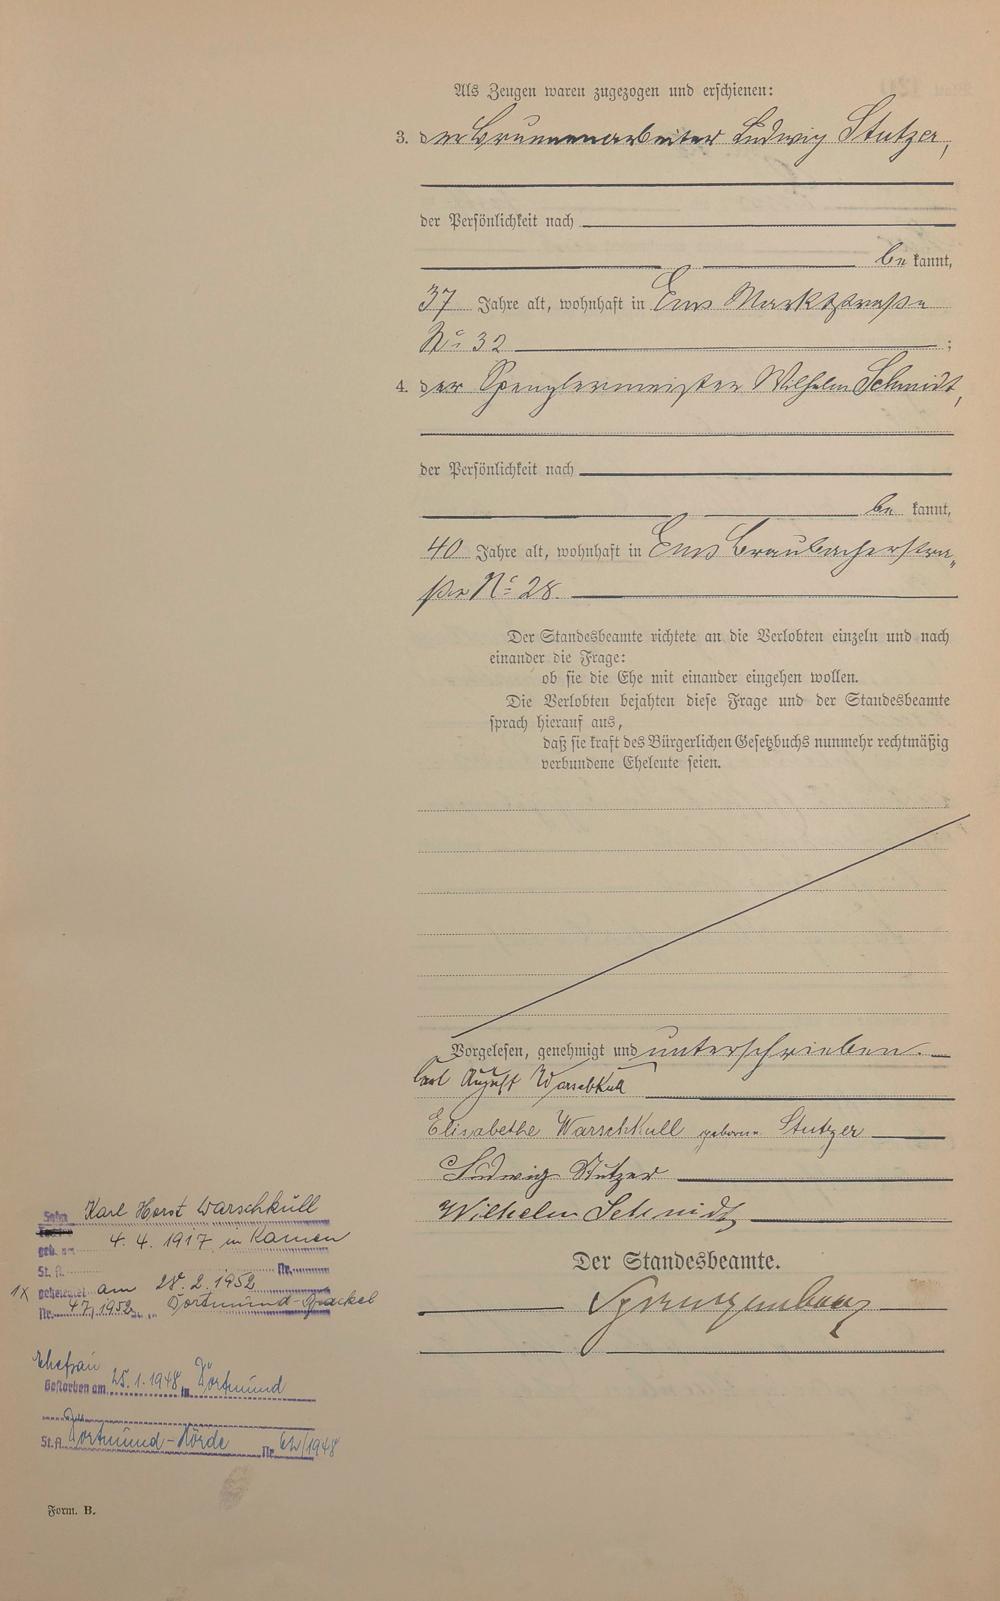 Als Zeugen waren zugezogen und erschienen:
3. der Brunnenarbeiter Ludwig Stutzer,
der Persönlichkeit nach
be kannt,
37 Jahre alt, wohnhaft in Ems Marktstraße
No 32 ;
4. der Spenglermeister Wilhelm Schmidt,
der Persönlichkeit nach
be kannt,
40 Jahre alt, wohnhaft in Ems Braubacherstra„
ße No 28.
Der Standesbeamte richtete an die Verlobten einzeln und nach
einander die Frage:
ob sie die Ehe mit einander eingehen wollen.
Die Verlobten bejahten diese Frage und der Standesbeamte
sprach hierauf aus,
daß sie kraft des Bürgerlichen Gesetzbuchs nunmehr rechtmäßig
verbundene Eheleute seien.
Vorgelesen, genehmigt und unterschrieben.
Carl August Warschkull
Elisabethe Warschkull geborne Stutzer
Ludwig Stutzer
Wilhelm Schmidt
Der Standesbeamte.
Sohn Karl Horst Warschkull
geb. am 4. 4. 1917 in Kamen
St. A. Nr.
1x geheiratet am 28. 2. 1952
Nr. 47/1952 St. A. Dortmund-Brackel
Ehefrau
Gestorben am 25. 1. 1948 in Dortmund
St. A. Dortmund-Hörde Nr. /1948
Form. B.